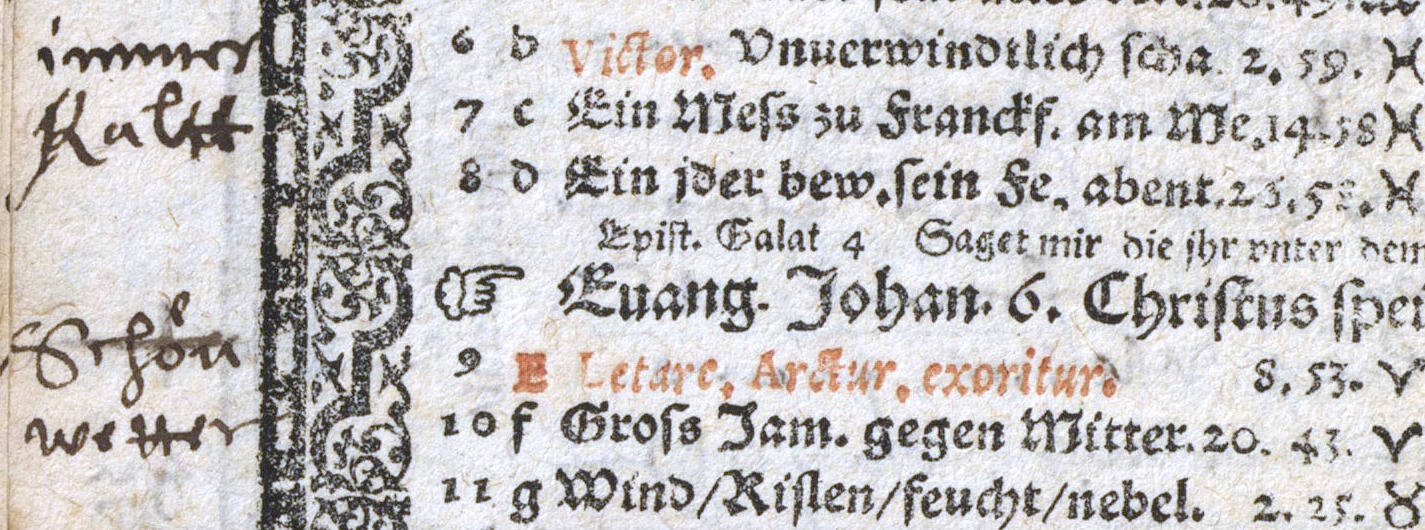 immer
Kaltt
Schön
wetter
6 b Victor. Vnuerwindtlich scha. 2. 59. ♓
7 c Ein Mess zu Franckf. am Me. 14. 58 ♓
8 d Ein jder bew. sein Fe. abent. 26. 58. ♓
Epist. Galat 4 Saget mir die jhr vnter dem
☞ Euang. Johan. 6. Christus spei
9 E Letare. Arctur. exoritur. 8. 53. ♈
10 f Gross Jam. gegen Mitter. 20. 43. ♈
11 g Wind/Rislen/feucht/nebel. 2. 25. ♉